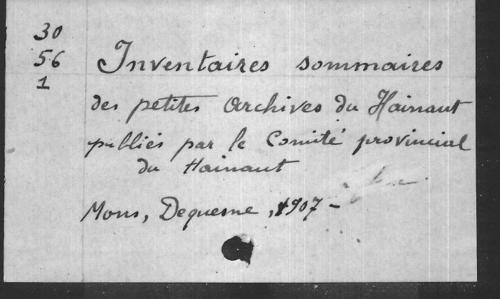 30
56
1
Inventaires sommaires
des petites Archives du Hainaut
publiés par le Comité provincial
du Hainaut
Mons, Dequesne, 1907-